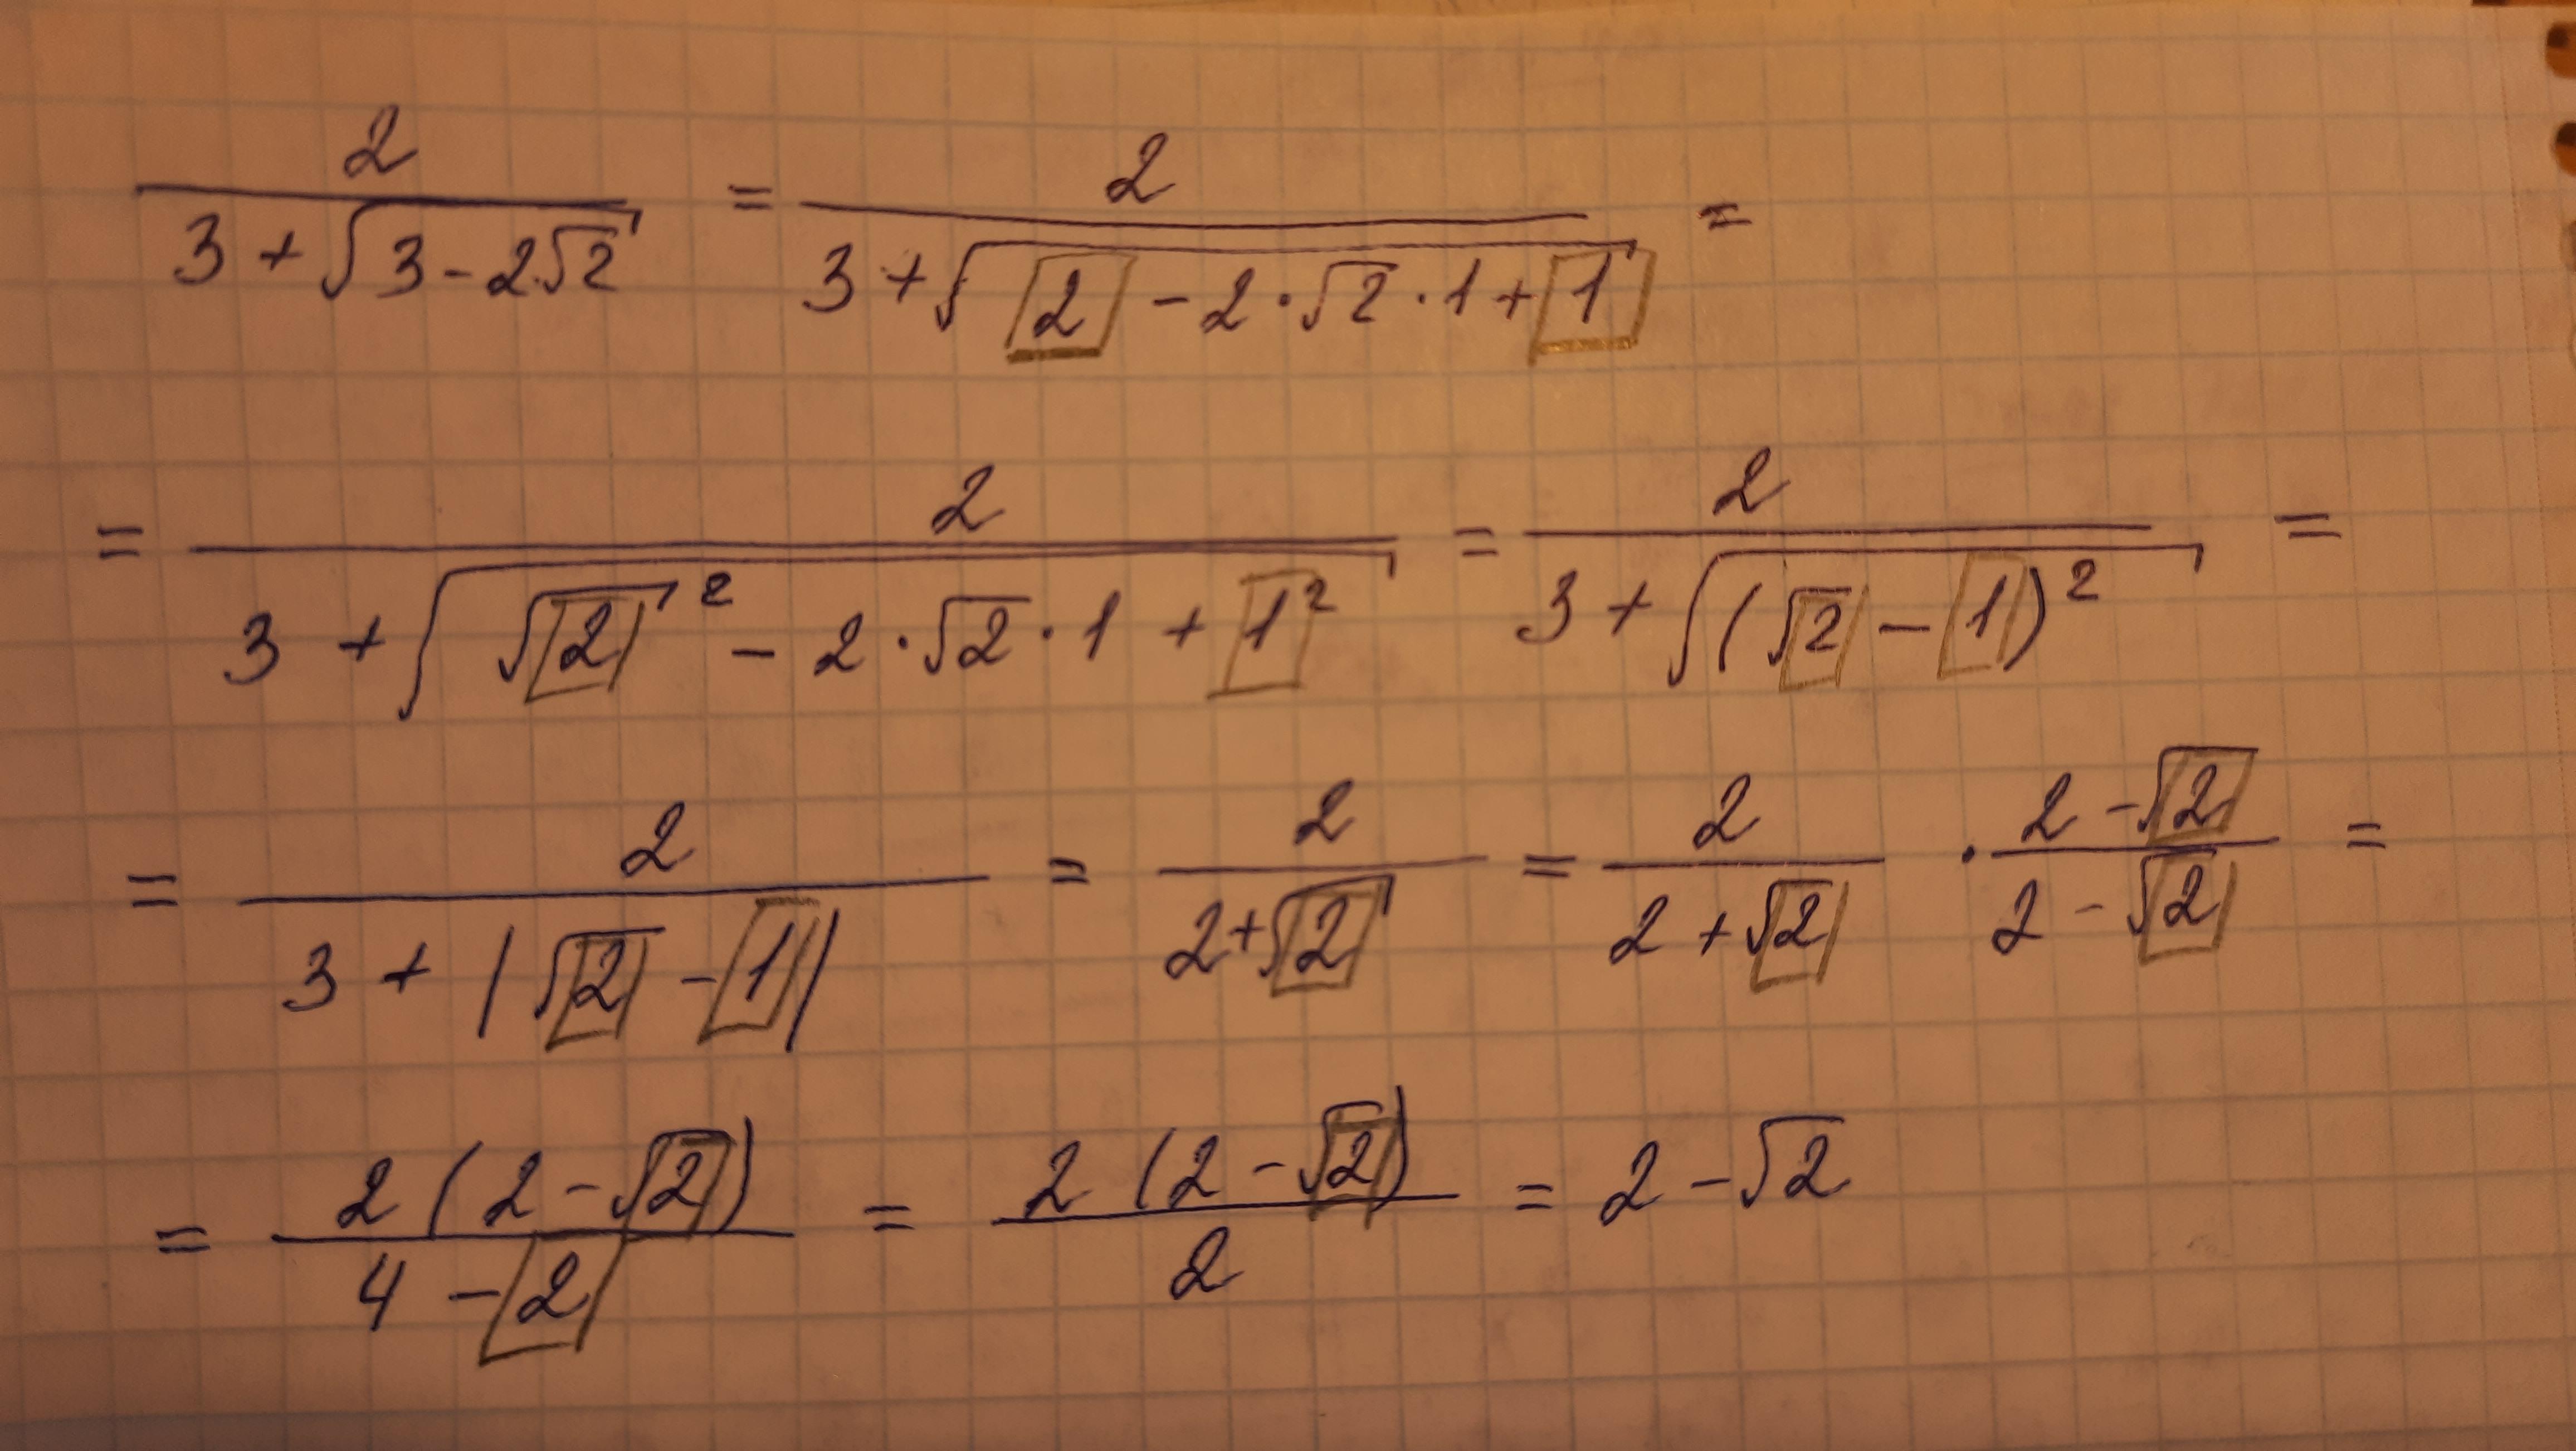 2 / (3 + √(3 - 2√2)) = 2 / (3 + √(2 - 2 · √2 · 1 + 1)) =
= 2 / (3 + √(√2² - 2 · √2 · 1 + 1²)) = 2 / (3 + √((√2 - 1)²)) =
= 2 / (3 + |√2 - 1|) = 2 / (2 + √2) = 2 / (2 + √2) · (2 - √2) / (2 - √2) =
= 2(2 - √2) / (4 - 2) = 2(2 - √2) / 2 = 2 - √2